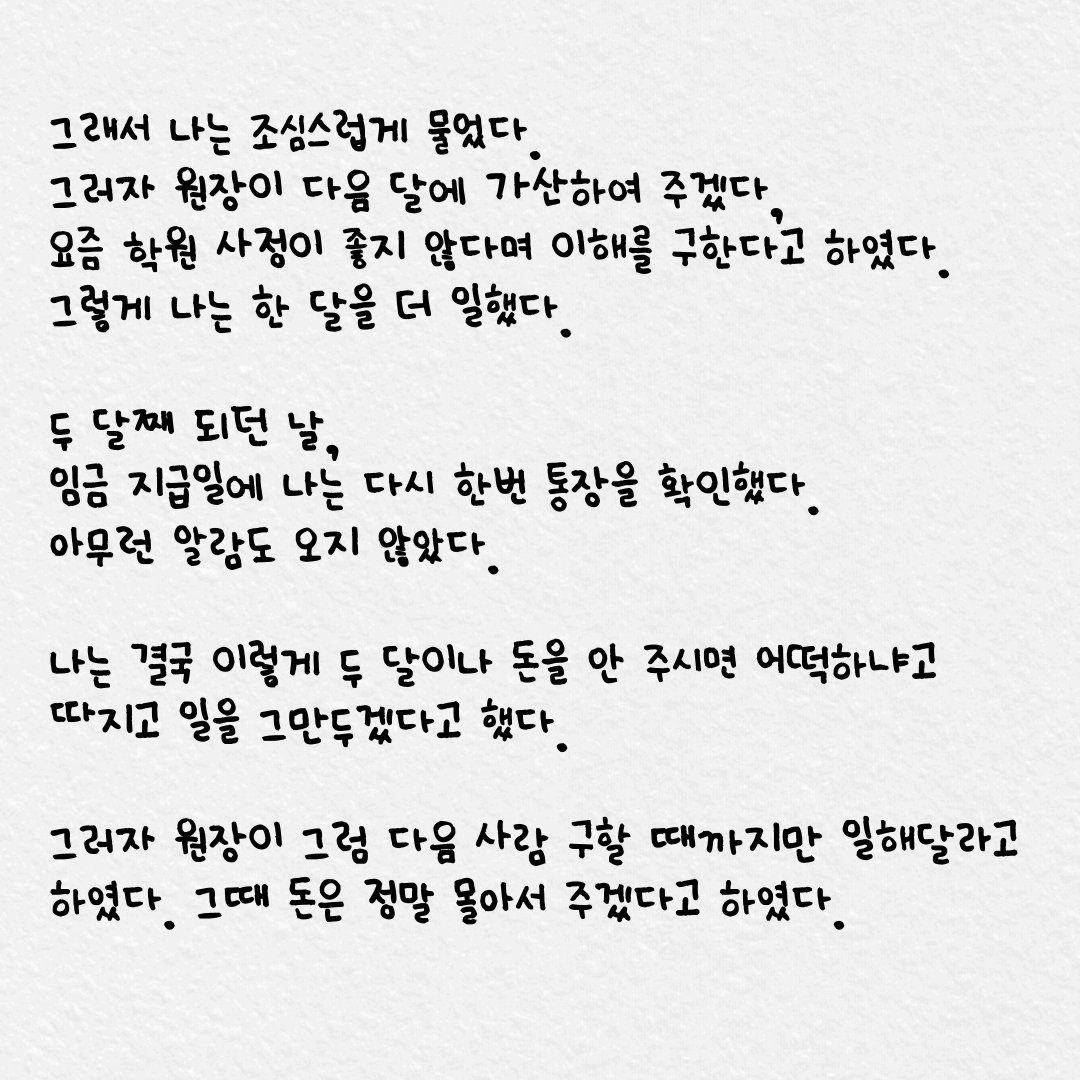 그래서 나는 조심스럽게 물었다.
그러자 원장이 다음 달에 가산하여 주겠다,
요즘 학원 사정이 좋지 않다며 이해를 구한다고 하였다.
그렇게 나는 한 달을 더 일했다.
두 달째 되던 날,
임금 지급일에 나는 다시 한번 통장을 확인했다.
아무런 알람도 오지 않았다.
나는 결국 이렇게 두 달이나 돈을 안 주시면 어떡하냐고
따지고 일을 그만두겠다고 했다.
그러자 원장이 그럼 다음 사람 구할 때까지만 일해달라고
하였다. 그때 돈은 정말 몰아서 주겠다고 하였다.